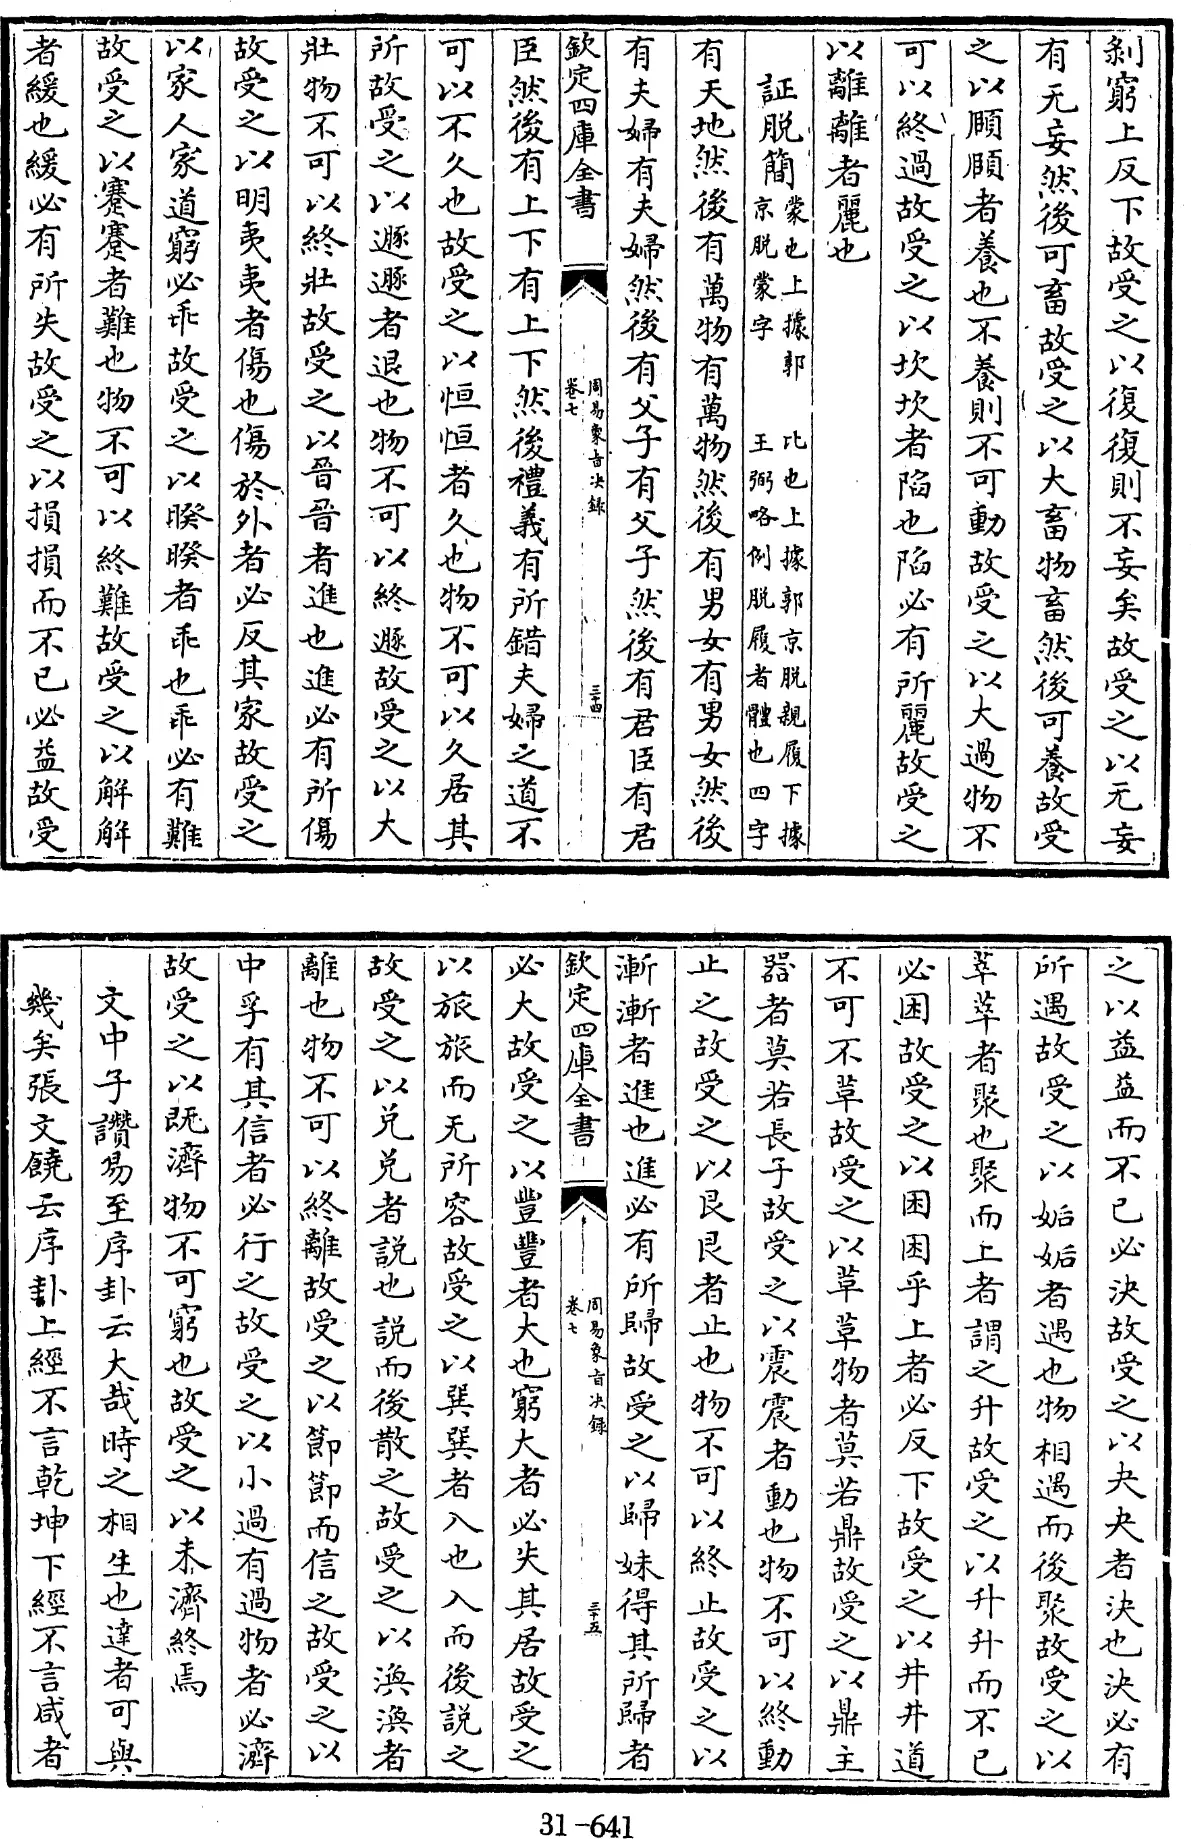 剝窮上反下故受之以復復則不妄矣故受之以无妄
有无妄然後可畜故受之以大畜物畜然後可養故受
之以頤頤者養也不養則不可動故受之以大過物不
可以終過故受之以坎坎者陷也陷必有所麗故受之
以離離者麗也
証脱簡蒙也上據郭京脱蒙字 比也上據郭京脱親履下據王弼略例脱履者體也四字
有天地然後有萬物有萬物然後有男女有男女然後
有夫婦有夫婦然後有父子有父子然後有君臣有君
欽定四庫全書
周易象旨决錄
卷七
三十四
臣然後有上下有上下然後禮義有所錯夫婦之道不
可以不久也故受之以恒恒者久也物不可以久居其
所故受之以遯遯者退也物不可以終遯故受之以大
壯物不可以終壯故受之以晉晉者進也進必有所傷
故受之以明夷夷者傷也傷於外者必反其家故受之
以家人家道窮必乖故受之以睽睽者乖也乖必有難
故受之以蹇蹇者難也物不可以終難故受之以解解
者緩也緩必有所失故受之以損損而不已必益故受
之以益益而不已必決故受之以夬夬者決也決必有
所遇故受之以姤姤者遇也物相遇而後聚故受之以
萃萃者聚也聚而上者謂之升故受之以升升而不已
必困故受之以困困乎上者必反下故受之以井井道
不可不革故受之以革革物者莫若鼎故受之以鼎主
器者莫若長子故受之以震震者動也物不可以終動
止之故受之以艮艮者止也物不可以終止故受之以
漸漸者進也進必有所歸故受之以歸妹得其所歸者
欽定四庫全書
周易象旨决錄
卷七
三十五
必大故受之以豐豐者大也窮大者必失其居故受之
以旅旅而无所容故受之以巽巽者入也入而後説之
故受之以兑兑者説也説而後散之故受之以渙渙者
離也物不可以終離故受之以節節而信之故受之以
中孚有其信者必行之故受之以小過有過物者必濟
故受之以既濟物不可窮也故受之以未濟終焉
文中子讚易至序卦云大哉時之相生也達者可與
幾矣張文饒云序卦上經不言乾坤下經不言咸者
31-641